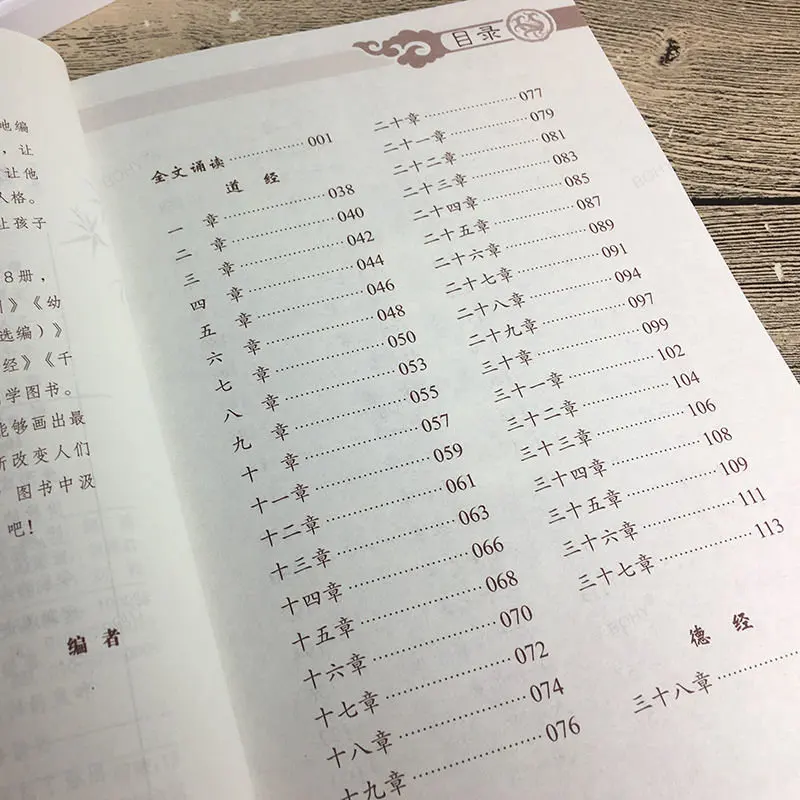 地编
，让
让他
人格。
上孩子
8册，
》《幼
选编）》
经》《千
学图书。
能够画出最
所改变人们
图书中汲
吧！
编者
目录
全文诵读……………001
道 经
一 章……………038
二 章……………040
三 章……………042
四 章……………044
五 章……………046
六 章……………048
七 章……………050
八 章……………053
九 章……………055
十 章……………057
十一章……………059
十二章……………061
十三章……………063
十四章……………066
十五章……………068
十六章……………070
十七章……………072
十八章……………074
十九章……………076
二十章……………077
二十一章……………079
二十二章……………081
二十三章……………083
二十四章……………085
二十五章……………087
二十六章……………089
二十七章……………091
二十八章……………094
二十九章……………097
三十章……………099
三十一章……………102
三十二章……………104
三十三章……………106
三十四章……………108
三十五章……………109
三十六章……………111
三十七章……………113
德 经
三十八章……………